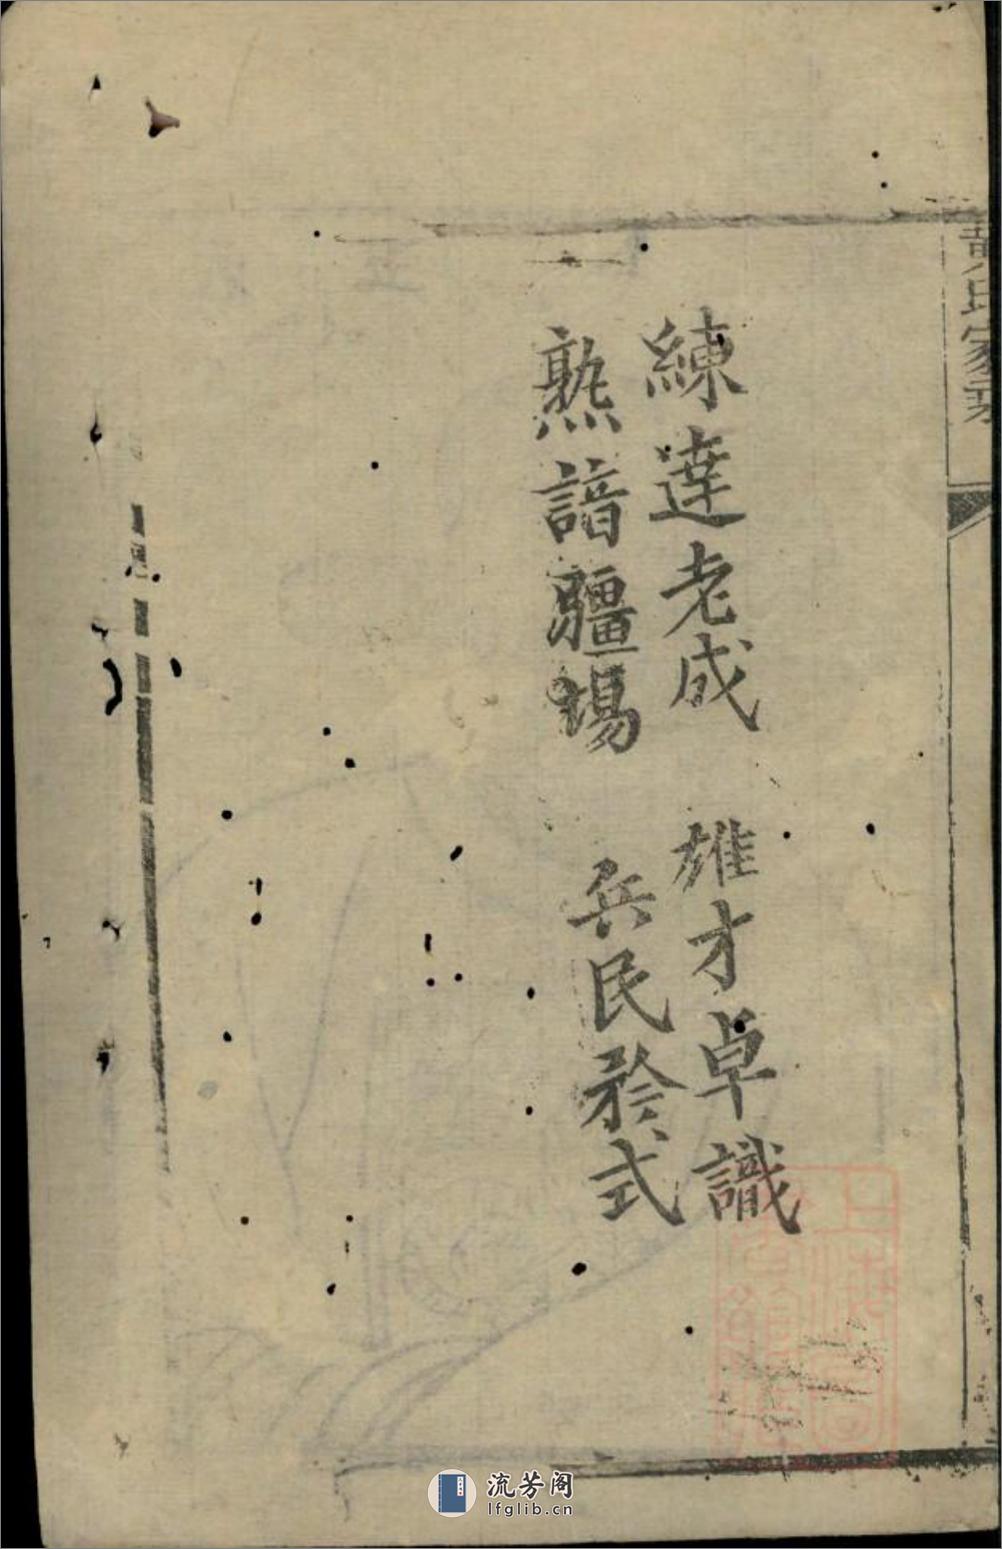 練達老成 雄才卓識
熟諳疆場 兵民矜式
氏家乘
流芳阁
lfglib.cn